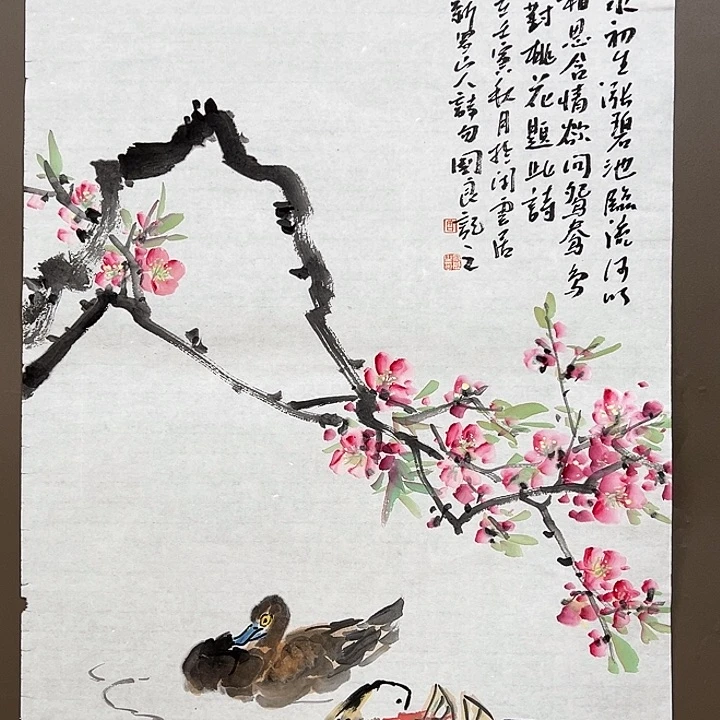 水初生漲碧池臨流何以
相思含情欲问鴛鴦鳥
對桃花題此詩
壬寅秋月於闲雲居
新罗山人詩句國良記之